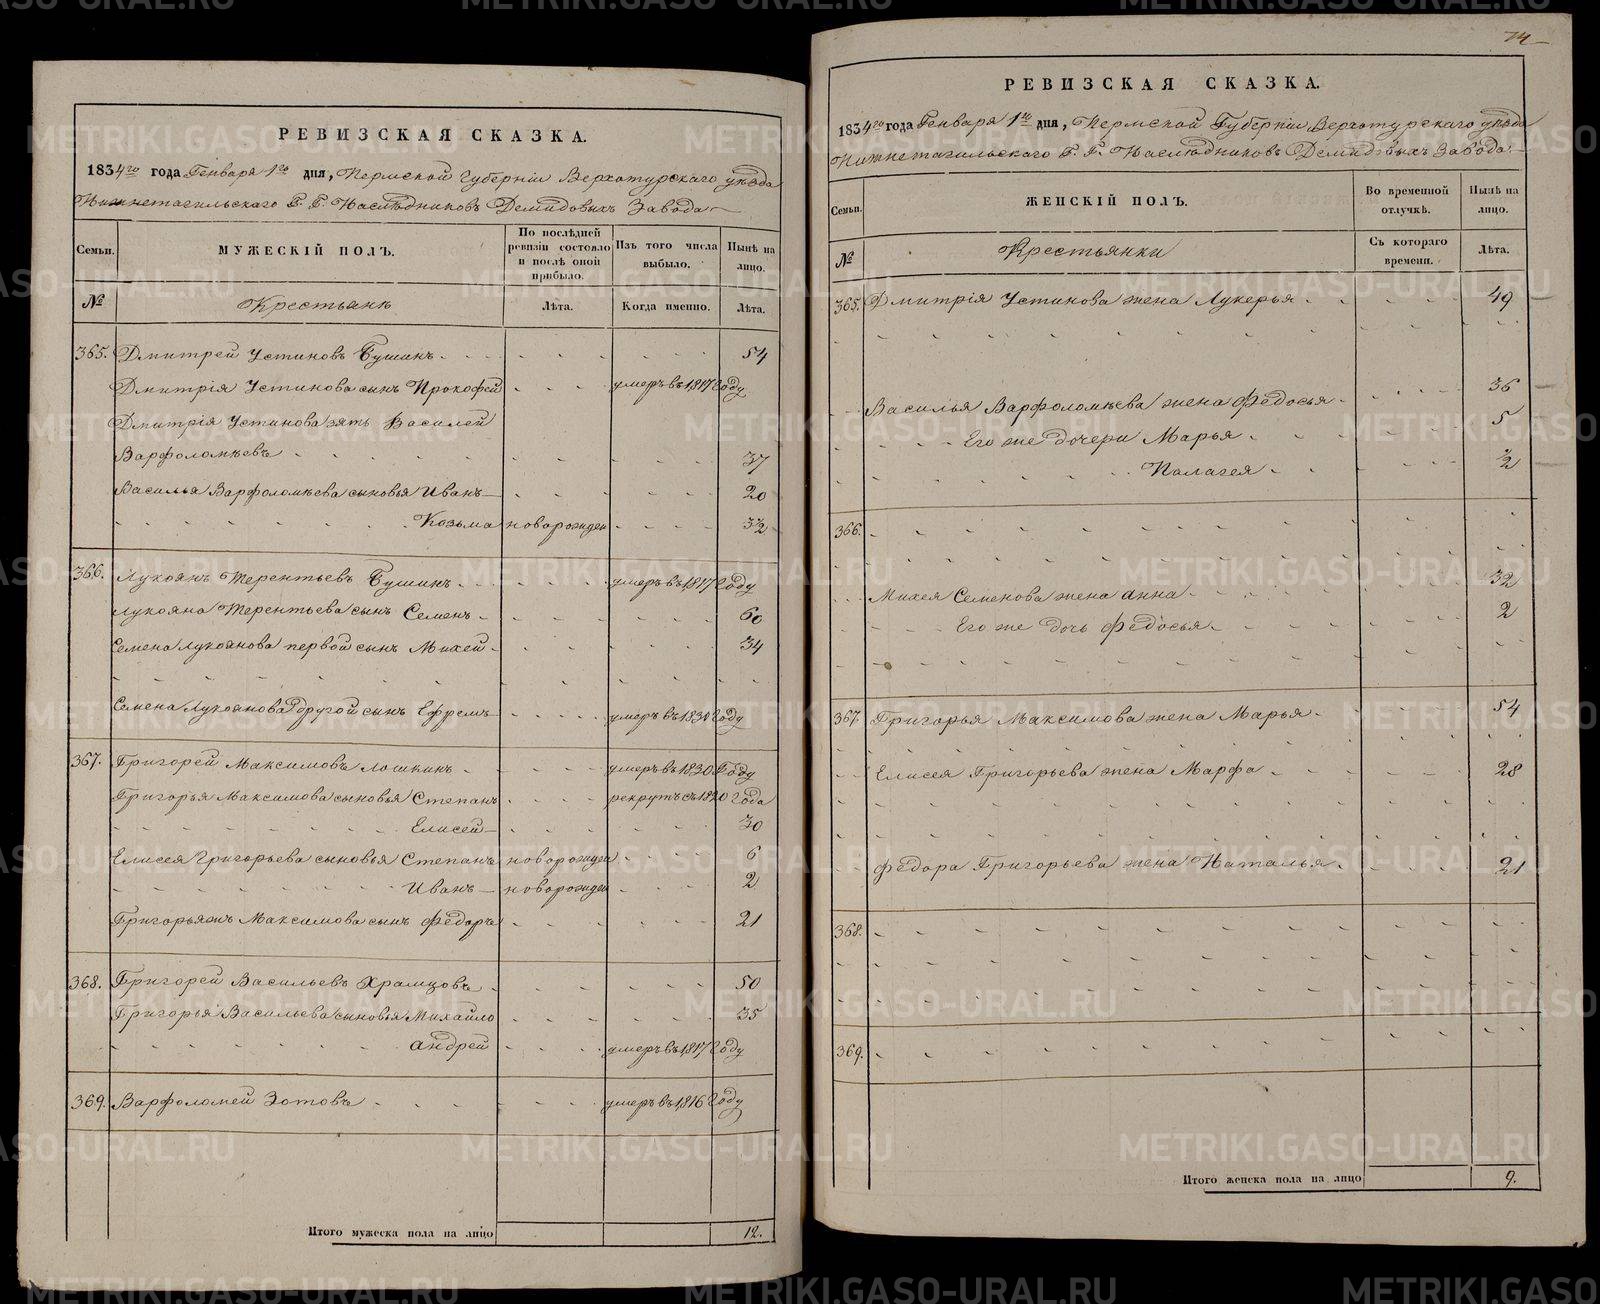 РЕВИЗСКАЯ СКАЗКА.
1834го года Генваря 1го дня, Пермской Губернiи Верхотурскаго уѣзда
Нижнетагильскаго Г. Г. Наслѣдниковъ Демидовыхъ Завода
Семьи. МУЖЕСКIЙ ПОЛЪ. По послѣдней ревизiи состояло и послѣ оной прибыло. Изъ того числа выбыло. Нынѣ на лицо.
№ Крестьянъ Лѣта. Когда именно. Лѣта.
365. Дмитрей Устиновъ Бушинъ 54
Дмитрiя Устинова сынъ Прокофей умеръ въ 1817 Году
Дмитрiя Устинова зять Василей
Варфоломѣевъ 37
Василья Варфоломѣева сыновья Иванъ 20
Козьма новорожден 3/2
366. Лукоянъ Терентьевъ Бушинъ умеръ въ 1817 Году
Лукояна Терентьева сынъ Семенъ 60
Семена Лукоянова первой сынъ Михей 34
Семена Лукоянова другой сынъ Ефремъ умеръ въ 1830 Году
367. Григорей Максимовъ Лошкинъ умеръ въ 1830 Году
Григорья Максимова сыновья Степанъ рекрутъ съ 1820 Года
Елисей 30
Елисея Григорьева сыновья Степанъ новорожден 6
Иванъ новорожден 2
Григорья жъ Максимова сынъ Федоръ 21
368. Григорей Васильевъ Храмцовъ 50
Григорья Васильева сыновья Михайло 35
Андрей умеръ въ 1817 Году
369. Варфоломей Зотовъ умеръ въ 1816 Году
Итого мужеска пола на лицо 12.
74
РЕВИЗСКАЯ СКАЗКА.
1834го года Генваря 1го дня, Пермской Губернiи Верхотурскаго уѣзда
Нижнетагильскаго Г. Г. Наслѣдниковъ Демидовыхъ Завода
Семьи. ЖЕНСКIЙ ПОЛЪ. Во временной отлучкѣ. Нынѣ на лицо.
№ Крестьянки Съ котораго времени. Лѣта.
365. Дмитрiя Устинова жена Лукерья 49
Василья Варфоломѣева жена Федосья 36
Его же дочери Марья 5
Палагея 3/2
366.
Михея Семенова жена Анна 32
Его же дочь Федосья 2
367. Григорья Максимова жена Марья 54
Елисея Григорьева жена Марфа 28
Федора Григорьева жена Наталья 21
368.
369.
Итого женска пола на лицо 9.
METRIKI.GASO-URAL.RU